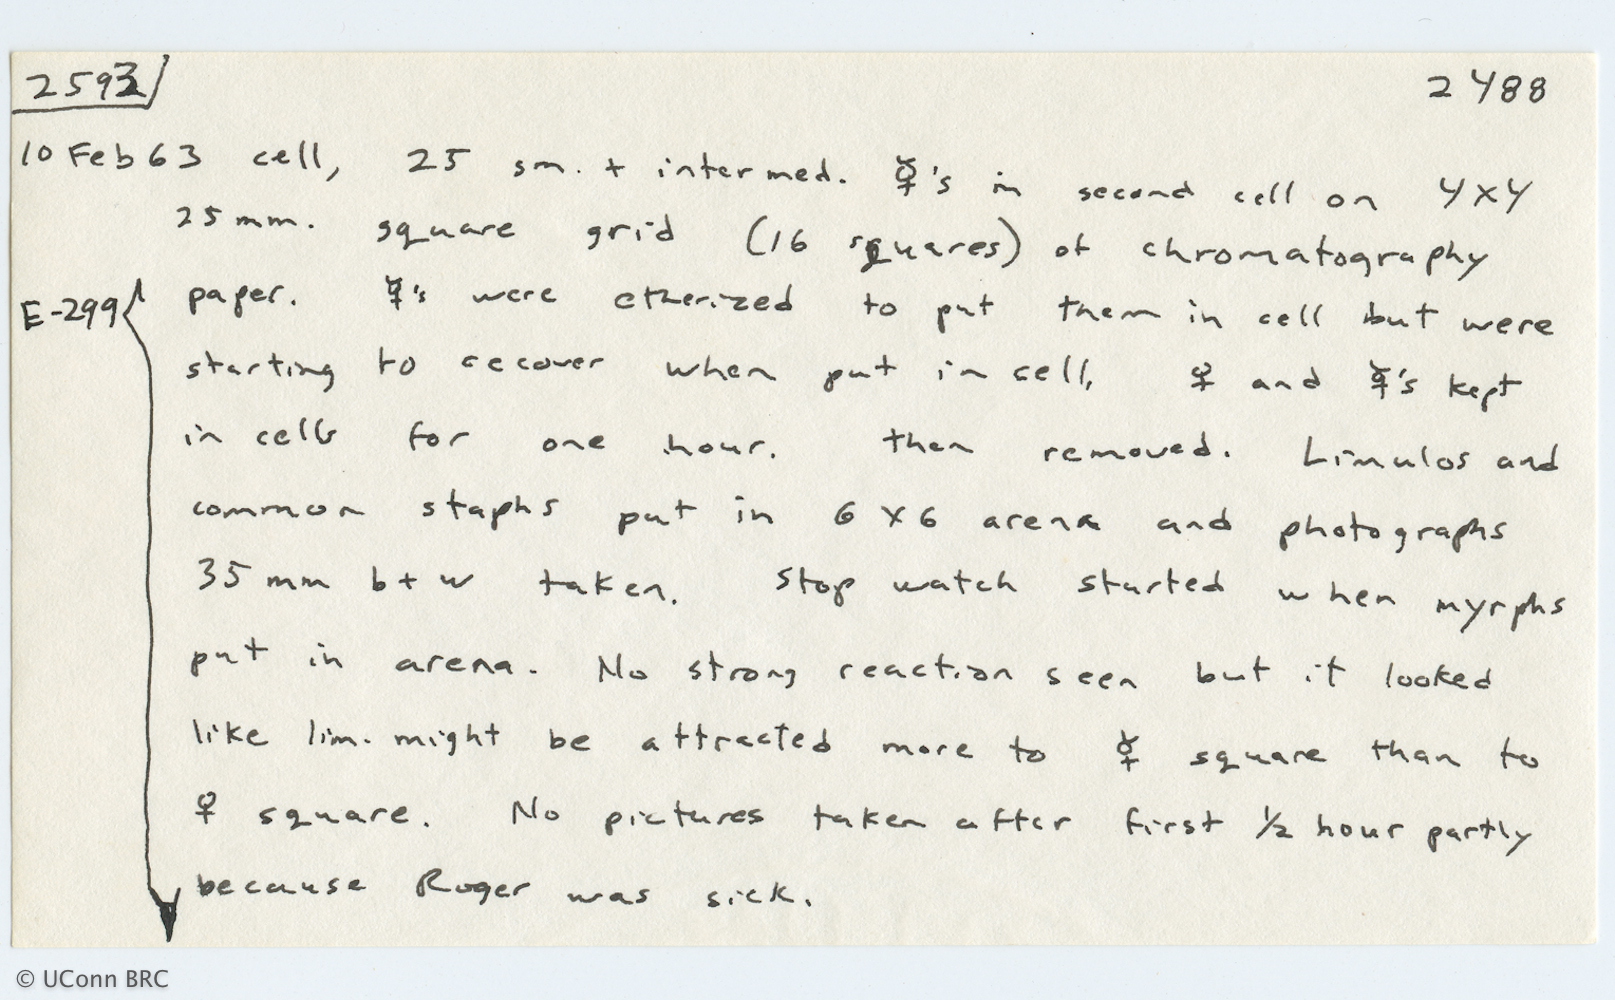 2593 2488
10 Feb 63 cell, 25 sm. + intermed. ☿'s in second cell on 4x4
25 mm. square grid (16 squares) of chromatography
E-299 paper. ☿'s were etherized to put them in cell but were
starting to recover when put in cell, ♀ and ☿'s kept
in cells for one hour. then removed. Limulos and
common staphs put in 6 x 6 arena and photographs
35 mm b + w taken. Stop watch started when myrphs
put in arena. No strong reaction seen but it looked
like lim. might be attracted more to ☿ square than to
♀ square. No pictures taken after first 1/2 hour partly
because Roger was sick.
© UConn BRC